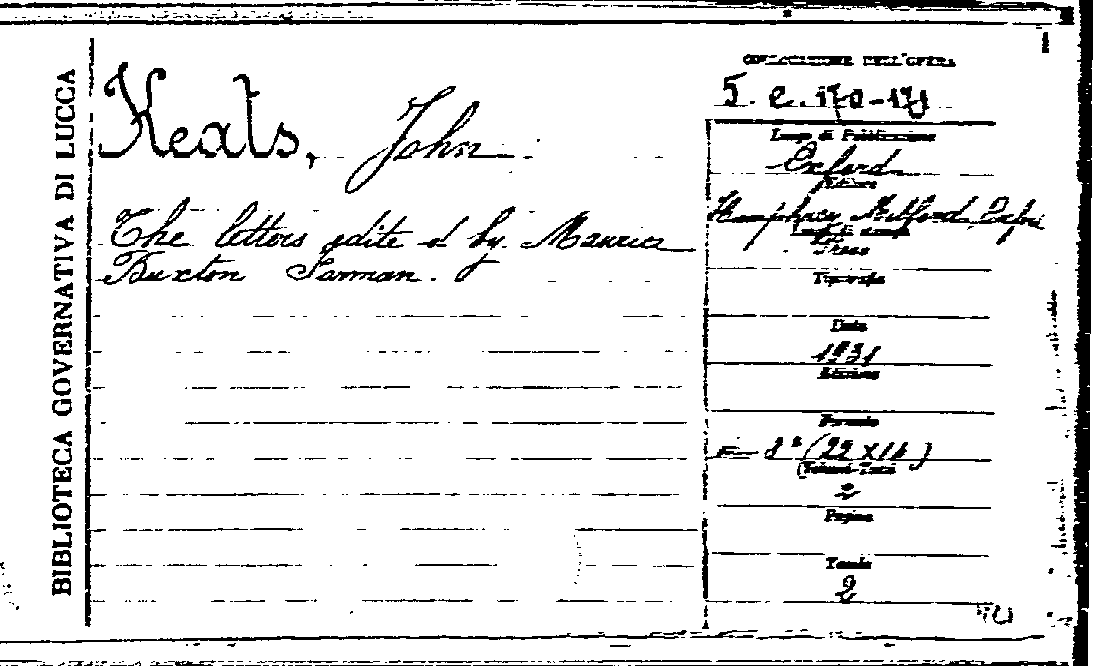 BIBLIOTECA GOVERNATIVA DI LUCCA
Keats, John
The letters edite d by Maurice
Buxton Forman.
COLLOCAZIONE DELL'OPERA
5. e. 170-171
Luogo di Pubblicazione
Oxford
Editore
Humphrey Milford Oxfor
Luogo di stampa
Press
Tipografia
Data
1931
Edizione
Formato
8° (22 x 14)
Volumi Tomi
2
Pagine
Tavole
2